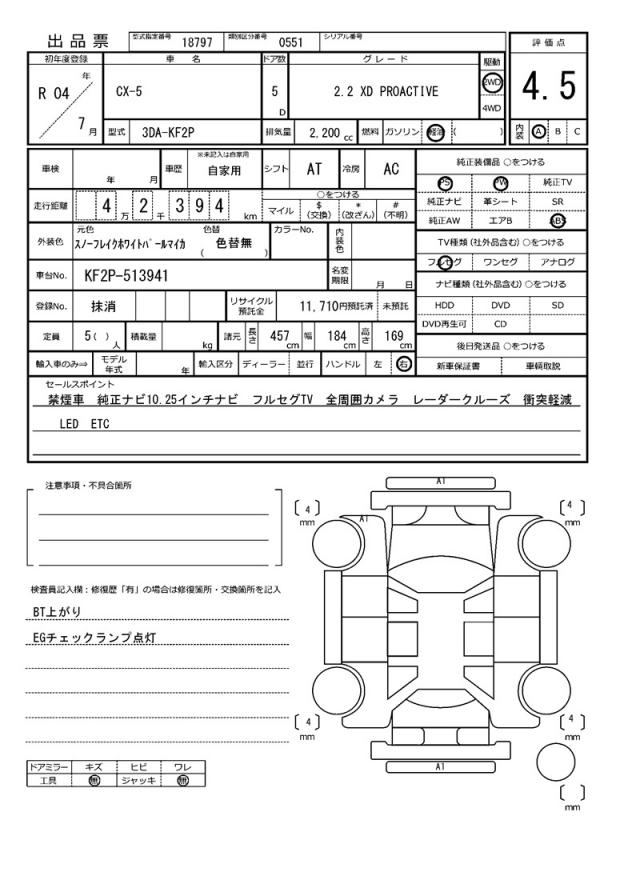 出 品 票 型式指定番号 18797 類別区分番号 0551 シリアル番号
評 価 点
4.5
内装 A B C
初年度登録 車 名 ドア数 グ レ ー ド 駆動
R 04 年 7 月
CX-5 5 D 2.2 XD PROACTIVE 2WD 4WD
型式 3DA-KF2P 排気量 2,200 cc 燃料 ガソリン 軽油 ( )
車検 年 月 車歴 ※未記入は自家用 自家用 シフト AT 冷房 AC
走行距離 4 万 2 千 3 9 4 km ○をつける
マイル $ (交換) * (改ざん) # (不明)
外装色 元色 スノーフレイクホワイトパールマイカ 色替 ( 色替無 ) カラーNo. 内装色
車台No. KF2P-513941 名変期限 月 日
登録No. 抹消 リサイクル預託金 11,710円預託済 未預託
定員 5( ) 人 積載量 kg 諸元 長さ 457 cm 幅 184 cm 高さ 169 cm
輸入車のみ⇒ モデル年式 年 輸入区分 ディーラー 並行 ハンドル 左 右
純正装備品 ○をつける
PS PW 純正TV
純正ナビ 革シート SR
純正AW エアB ABS
TV種類 (社外品含む) ○をつける
フルセグ ワンセグ アナログ
ナビ種類 (社外品含む) ○をつける
HDD DVD SD
DVD再生可 CD
後日発送品 ○をつける
新車保証書 車輌取説
セールスポイント
禁煙車 純正ナビ10.25インチナビ フルセグTV 全周囲カメラ レーダークルーズ 衝突軽減
LED ETC
注意事項・不具合箇所
検査員記入欄：修復歴「有」の場合は修復箇所・交換箇所を記入
BT上がり
EGチェックランプ点灯
ドアミラー キズ ヒビ ワレ
工具 無 ジャッキ 無
A1
〔 4 〕 mm
A1
〔 4 〕 mm
〔 4 〕 mm
〔 4 〕 mm
A1
〔 〕 mm